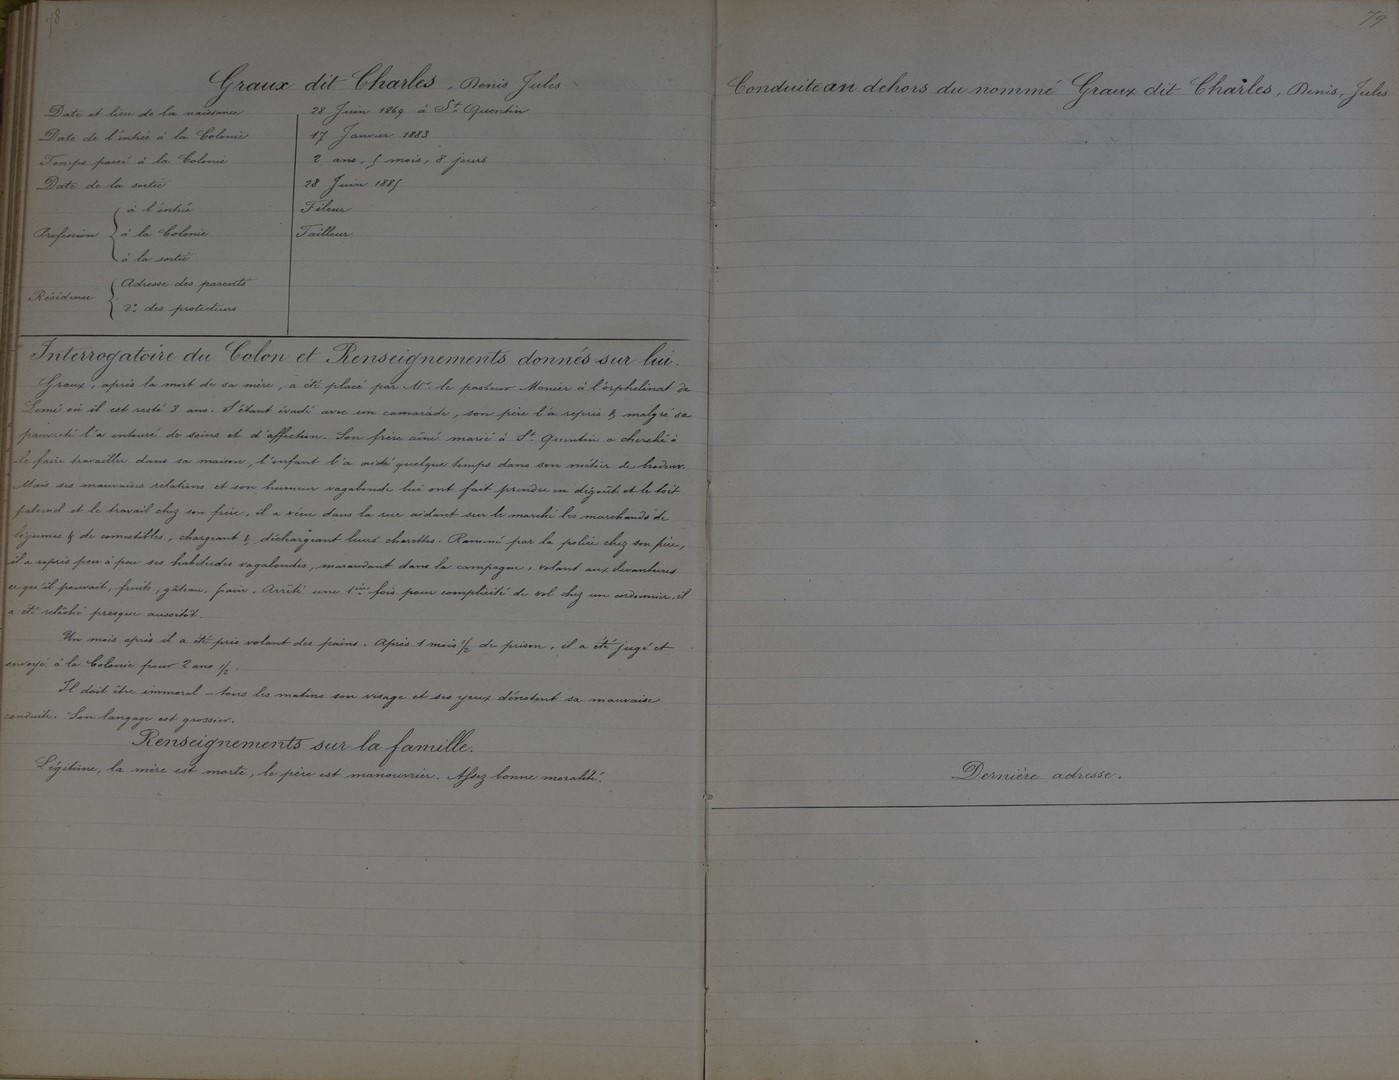 78
Graux dit Charles, Denis Jules
Date et lieu de la naissance 28 Juin 1869 à St Quentin
Date de l'entrée à la Colonie 17 Janvier 1883
Temps passé à la Colonie 2 ans, 5 mois, 8 jours
Date de la sortie 28 Juin 1885
Profession
à l'entrée Fileur
à la Colonie Tailleur
à la sortie
Résidence
Adresse des parents
do des protecteurs
Interrogatoire du Colon et Renseignements donnés sur lui.
Graux, après la mort de sa mère, a été placé par Mr le pasteur Monier à l'orphelinat de
Lemé où il est resté 3 ans. S'étant évadé avec un camarade, son père l'a repris & malgré sa
pauvreté l'a entouré de soins et d'affection. Son frère aîné marié à St Quentin a cherché à
le faire travailler dans sa maison, l'enfant l'a aidé quelque temps dans son métier de brodeur.
Mais ses mauvaises relations et son humeur vagabonde lui ont fait prendre en dégoût et le toit
paternel et le travail chez son frère, il a vécu dans la rue aidant sur le marché les marchands de
légumes & de comestibles, chargeant & déchargeant leurs charettes. Ramené par la police chez son père,
il a repris peu à peu ses habitudes vagabondes, maraudant dans la campagne, volant aux devantures
ce qu'il pouvait, fruits, gâteau, pain. Arrêté une 1ère fois pour complicité de vol chez un cordonnier, il
a été relâché presque aussitôt.
Un mois après il a été pris volant des pains. Après 1 mois 1/2 de prison, il a été jugé et
envoyé à la Colonie pour 2 ans 1/2.
Il doit être immoral - tous les matins son visage et ses yeux dénotent sa mauvaise
conduite. Son langage est grossier.
Renseignements sur la famille.
Légitime, la mère est morte, le père est manouvrier. Assez bonne moralité.
79
Conduite au dehors du nommé Graux dit Charles, Denis, Jules
Dernière adresse.